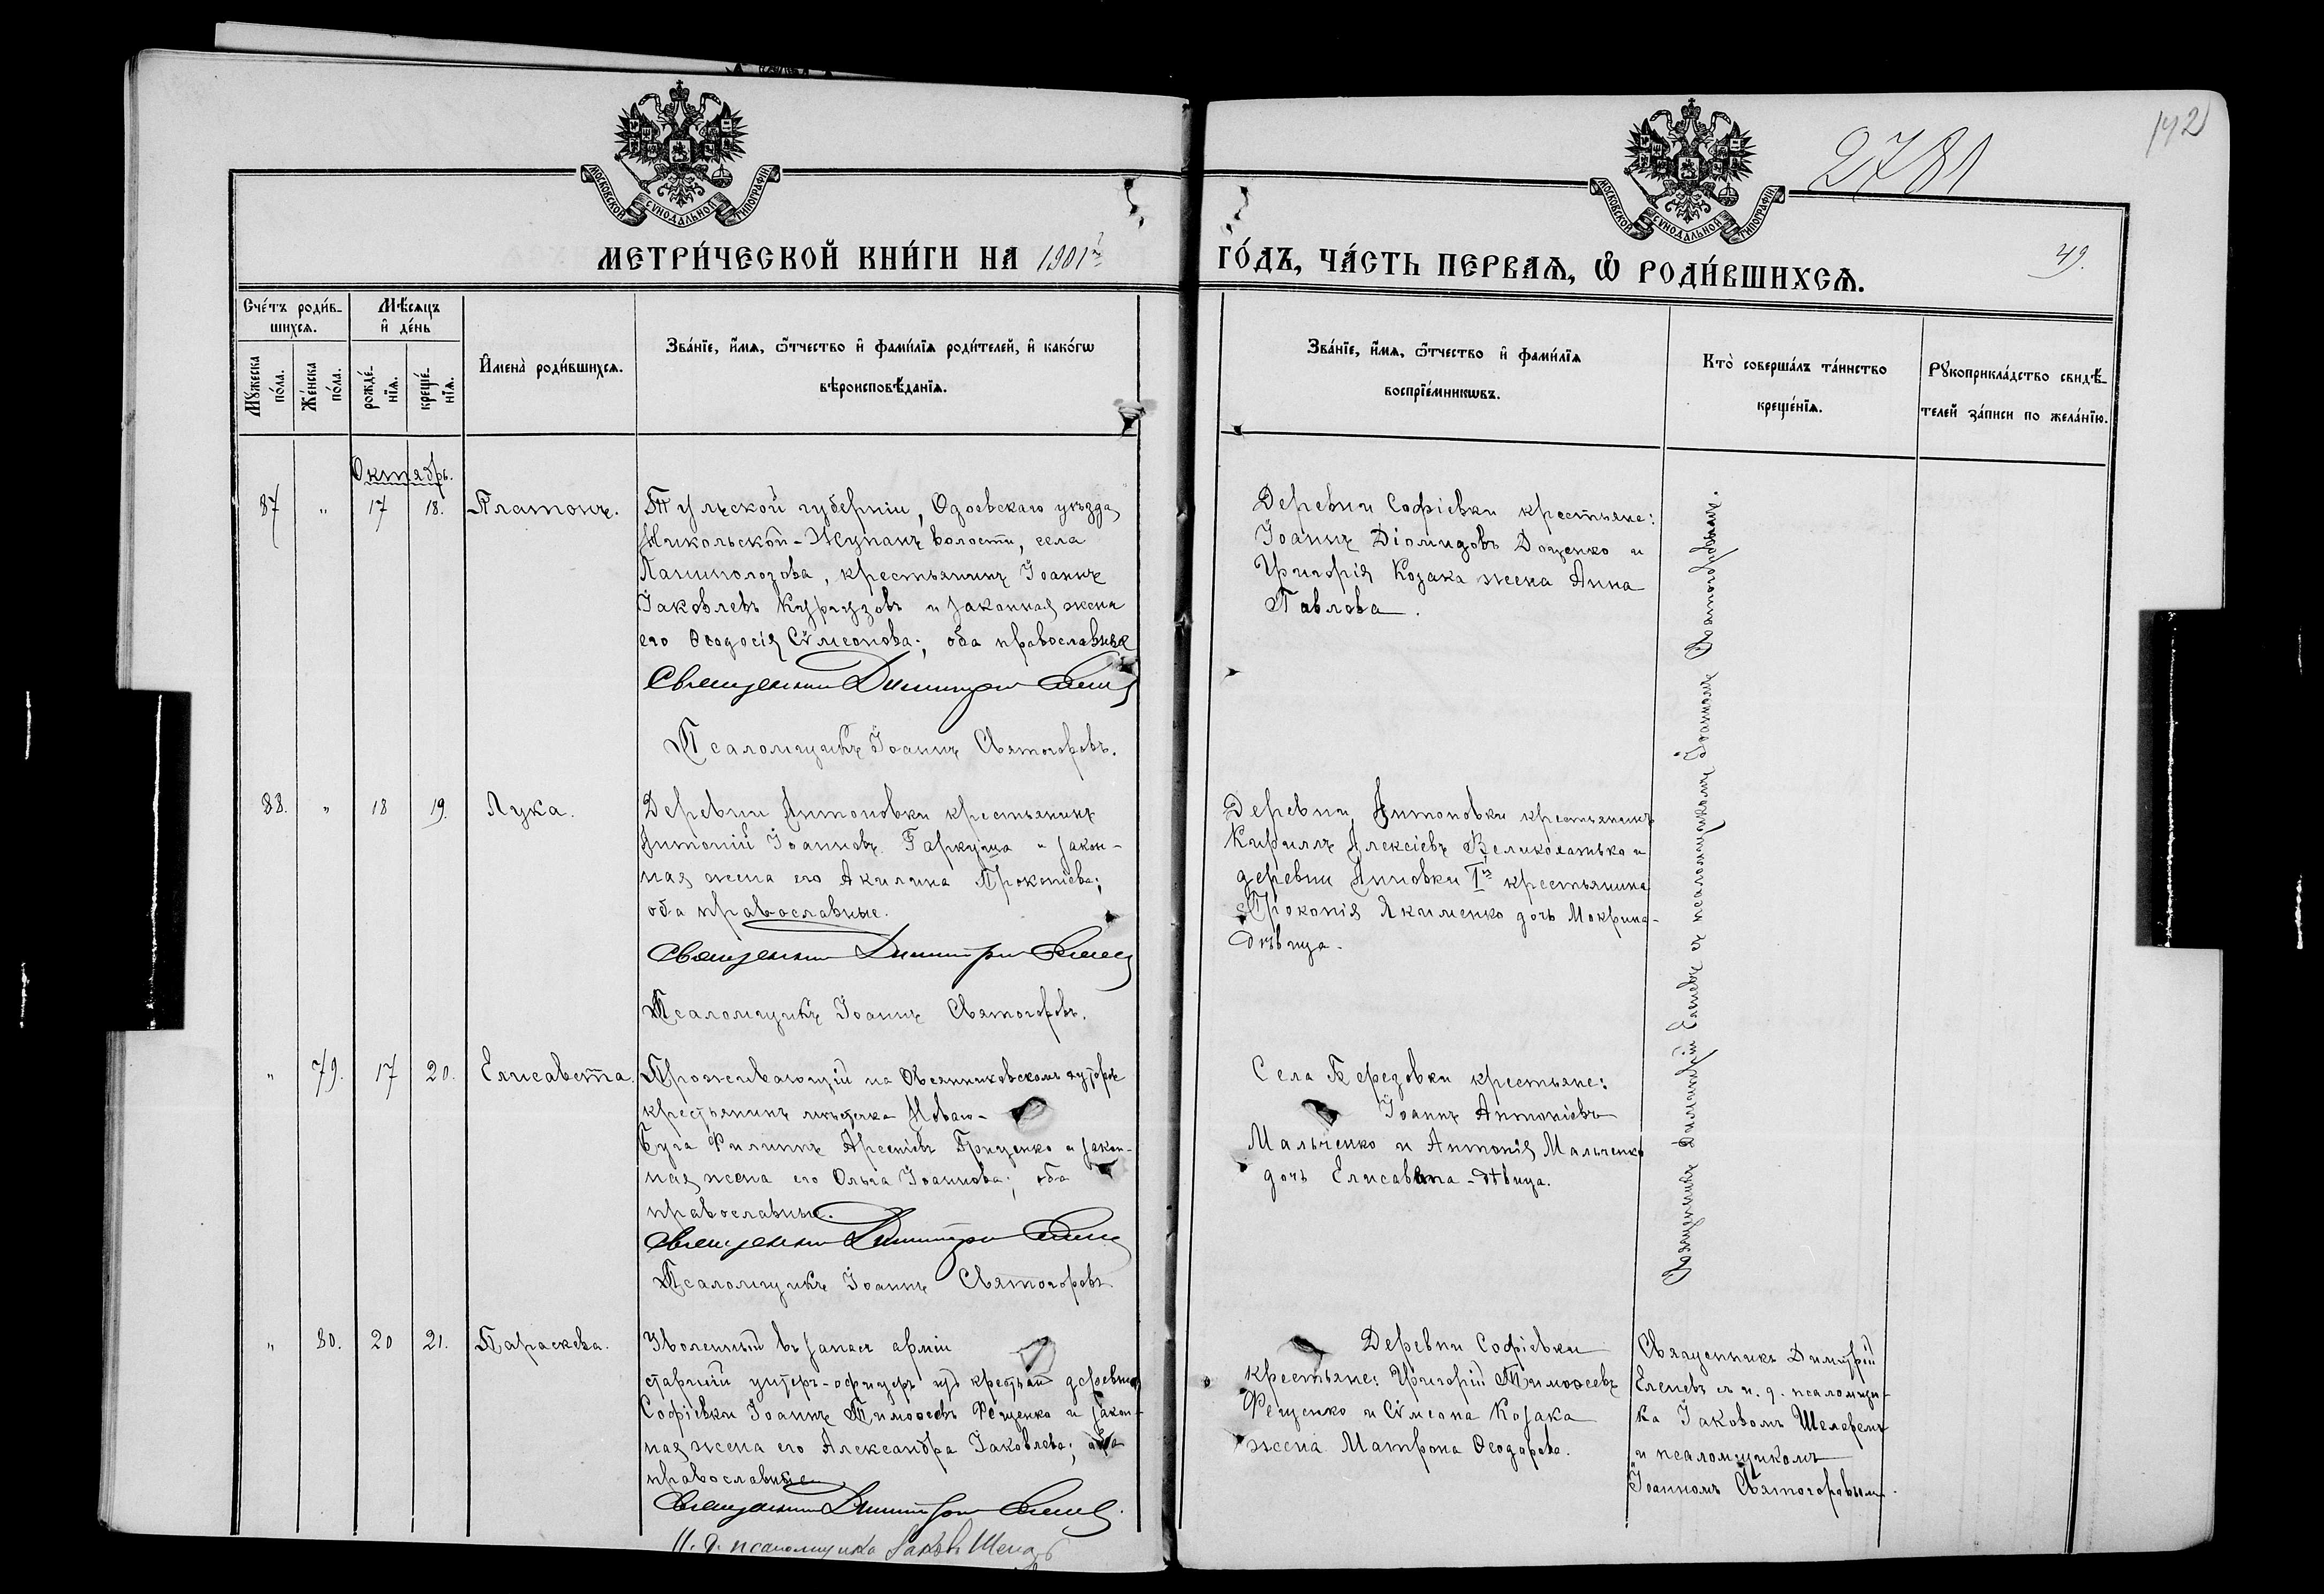 142
2781
49.
МОСКОВСКОЙ СУНОДАЛЬНОЙ ТИПОГРАФІИ
МОСКОВСКОЙ СУНОДАЛЬНОЙ ТИПОГРАФІИ
МЕТРИ́ЧЕСКОЙ КНИ́ГИ НА 1901й
ГО́ДЪ, ЧА́СТЬ ПЕРВАѦ, Ѡ РОДИ́ВШИХСѦ.
Сче́тъ роди́в-
шихсѧ.
Мꙋжеска
по́ла.
Же́нска
по́ла.
Мѣсяцъ
и҆ де́нь
рожде́-
нїѧ.
креще́-
нїѧ.
И҆мена̀ роди́вшихсѧ.
Зва́нїе, и҆́мѧ, ѻ҆́тчество и҆ фами́лїѧ роди́телей, и҆ како́гѡ
вѣроисповѣ́данїѧ.
Зва́нїе, и҆́мѧ, ѻ҆́тчество и҆ фами́лїѧ
воспрїе́мникѡвъ.
Кто̀ соверша́лъ та́инство
креще́нїѧ.
Рꙋкоприкла́дство свидѣ́-
телей за́писи по жела́нїю.
Октябрь.
87 " 17 18. Платонъ.
Тульской губерніи, Одоевскаго уѣзда,
Никольской-Жупань волости, села
крестьянинъ Іоаннъ
Іаковлевъ Кургузовъ и законная жена
его Ѳеодосія Сѵмеонова; оба православные
Священникъ Димитрій Еленевъ
Псаломщикъ Іоаннъ Святогоровъ.
Деревни Софіевки крестьяне:
Іоаннъ Діомидовъ Доценко и
Григорія Козака жена Анна
Павлова.
88. " 18 19. Лука.
Деревни Антоновки крестьянинъ
Антоній Іоанновъ Гаркуша и закон-
ная жена его Акилина Прокопіева;
оба православные.
Священникъ Димитрій Еленевъ
Псаломщикъ Іоаннъ Святогоровъ.
Деревни Антоновки крестьянинъ
Кириллъ Алексіевъ и
деревни Анновки Iй крестьянина
Прокопія Якименко дочь Мокрина-
дѣвица.
" 79. 17 20. Елисавета.
Проживающій на Овсянниковскомъ хуторѣ
крестьянинъ мѣстечка Новаго-
Буга Филиппъ Арсеніевъ Гриценко и закон-
ная жена его Ольга Іоаннова; оба
православные.
Священникъ Димитрій Еленевъ
Псаломщикъ Іоаннъ Святогоровъ
Села Березовки крестьяне:
Іоаннъ Антоніевъ
Мальченко и Антонія Мальченко
дочь Елисавета-дѣвица.
Священникъ Димитрій Еленевъ съ псаломщикомъ Іоанномъ Святогоровымъ.
" 80. 20 21. Параскева.
Уволенный въ запасъ арміи
старшій унтеръ-офицеръ изъ крестьян деревни
Софіевки Іоаннъ Тимоѳеевъ Фещенко и закон-
ная жена его Александра Іаковлева; оба
православные
Священникъ Димитрій Еленевъ.
И. д. псаломщика Іаковъ
Деревни Софіевки
крестьяне: Григорій Тимоѳеевъ
Фещенко и Сѵмеона Козака
жена Матрона Ѳеодорова.
Священникъ Димитрій
Еленевъ съ и. д. псаломщи-
ка Іаковомъ
и псаломщикомъ
Іоанномъ Святогоровымъ.